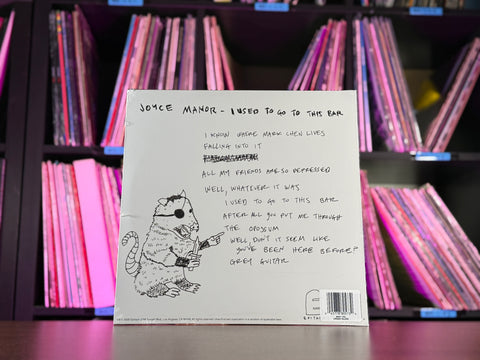 JOYCE MANOR - I USED TO GO TO THIS BAR
I KNOW WHERE MARK CHEN LIVES
FALLING INTO IT
ALL MY FRIENDS ARE SO DEPRESSED
WELL, WHATEVER IT WAS
I USED TO GO TO THIS BAR
AFTER ALL YOU PUT ME THROUGH
THE OPOSSUM
WELL DON'T IT SEEM LIKE
YOU'VE BEEN HERE BEFORE?
GREY GUITAR